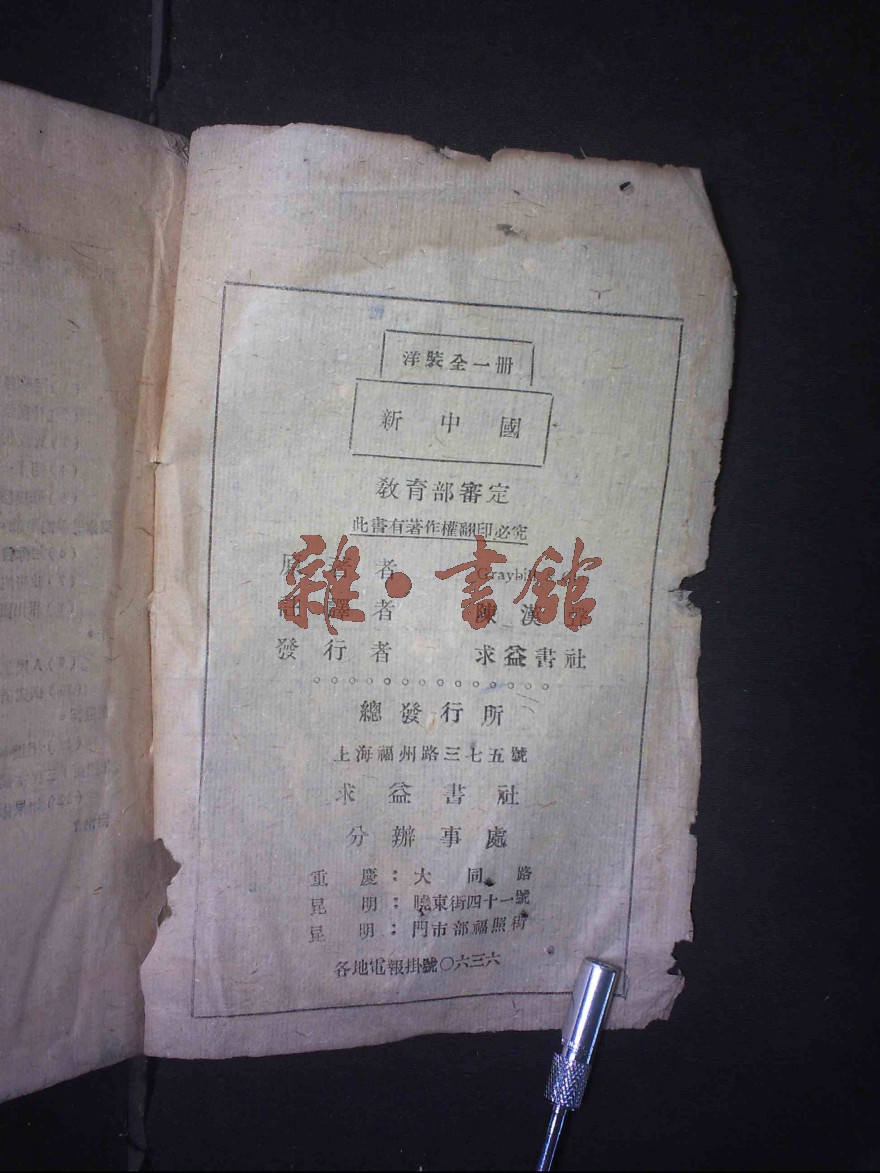 洋裝全一冊
新中國
教育部審定
此書有著作權翻印必究
原著者 Graybill
註譯者 陳漢
發行者 求益書社
總發行所
上海福州路三七五號
求益書社
分辦事處
重慶：大同路
昆明：曉東街四十一號
昆明：門市部福照街
各地電報掛號〇六三六
雜·書館